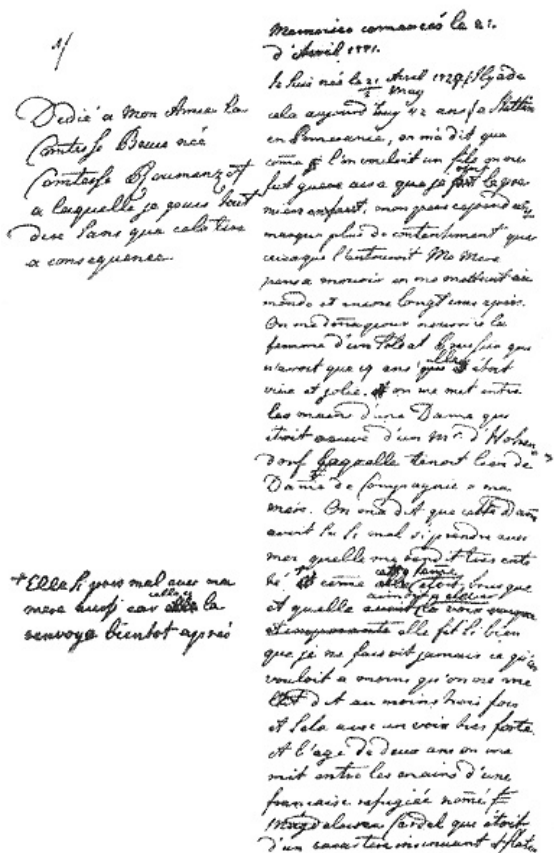 1/
Dedié a mon Amie la
Comtesse Bruce née
Comtesse Roumanzof
a laquelle je pouis tout
dire sans que cela tire
a consequence.
Memoires comancés le 21.
d'Avril 1771.
Je suis née le 21 Avril 1729 (il y a de
2 May
cela aujourd'huy 42 ans) a Stettin
en Pomeranie, on m'a dit que
come l'on vouloit un fils on ne
fut gueres aise que je fut le pre
mier enfant, mon pere cependant
marqua plus de contentement que
l'entouroit Ma Mere
pensa mourir en me mettant au
monde et encore longtems après.
On me dona pour nourrice la
femme d'un soldat Prussien qui
n'avoit que 19 ans elle étoit
vive et jolie. on me mit entre
les mains d'une Dame qui
étoit veuve d'un Mr. d'Hohen
dorf laquelle tenoit lieu de
Dame de Compagnie a ma
mere. On m'a dit que cette Dame
avoit su si mal s'y prendre avec
moi quelle me rendit très enté
té come cette dame étoit brusque
et quelle aimoit a élever la voix
elle fit si bien
que je ne faisoit jamais ce qu'on
vouloit a moins qu'on ne me
l'eut dit au moins trois fois
et cela avec un voix tres forte.
A l'age de deux ans on me
mit entre les mains d'une
française refugiée nomé
Magdeleine Cardel qui étoit
d'un caractere insinuant
*Elle s'y pris mal avec ma
mere aussi car celle la
renvoya bientot après